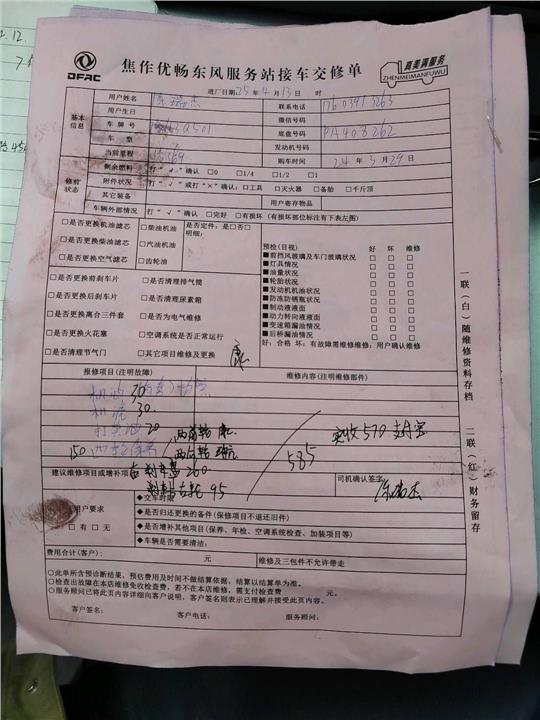 DFAC
焦作优畅东风服务站接车交修单
真美满服务
ZHENMEIMANFUWU
进厂日期 25 年 4 月 13 日 时
基本信息
用户姓名
联系电话
用户生日
微信号码
车牌号
底盘号码 PA408262
车型
发动机号码
当前里程
购车时间 24 年 3 月 29 日
修前状态
剩余燃料 打“√”确认 □0 □1/4 □1/2 □1
附件状况 打“√”或打“×”确认:□工具 □灭火器 □备胎 □千斤顶
其它装备
用户寄存物品
车辆外部情况 打“√”确认 □完好 □有损坏 (有损坏部位标注有下表左图)
□是否更换机油滤芯 □柴油机油 □是否定件:是□否□
□是否更换柴油滤芯 □汽油机油 明细:
□是否更换空气滤芯 □齿轮油
□是否更换前刹车片 □是否清理排气筒
□是否更换后刹车片 □是否清理尿素箱
□是否更换离合三件套 □是否为电气维修
□是否更换火花塞 □空调系统是否正常运行
□是否清理节气门 □其它项目维修及更换
预检(目视) 好 坏 维修
■前挡风玻璃及车门玻璃状况 □ □ □
■灯具情况 □ □ □
■油量状况 □ □ □
■轮胎状况 □ □ □
■发动机机油状况 □ □ □
■防冻防锈液状 □ □ □
■制动液液面 □ □ □
■动力转向液液面 □ □ □
■变速箱漏油情况 □ □ □
■后桥漏油情况 □ □ □
好:合格 坏:有故障需维修维修:用户确认维修
报修项目(注明故障)
维修内容(注明维修部件)
30
30
20
150
实收570 支付宝
585
260
95
建议维修项目或增补项目
司机确认签字
用户要求
□有 □无
◆交车时限
◆是否归还更换的备件(保修项目不退还旧件)
◆是否增补其他项目(保养、年检、空调系统检查、加装项目等)
◆车辆是否需要清洁:
费用合计(客户): 元
维修及三包件不允许带走
○此单所含预诊断结果,预估费用及时间不做结算依据,结算以结算单为准。
○检查出故障在本店维修免收检查费,若不在本店维修,需支付检查费 元。
○服务顾问已将此页内容详细向客户说明,客户签名则表示已理解并接受此页内容。
客户签名: 客户电话: 服务顾问:
一联(白)随维修资料存档
二联(红)财务留存